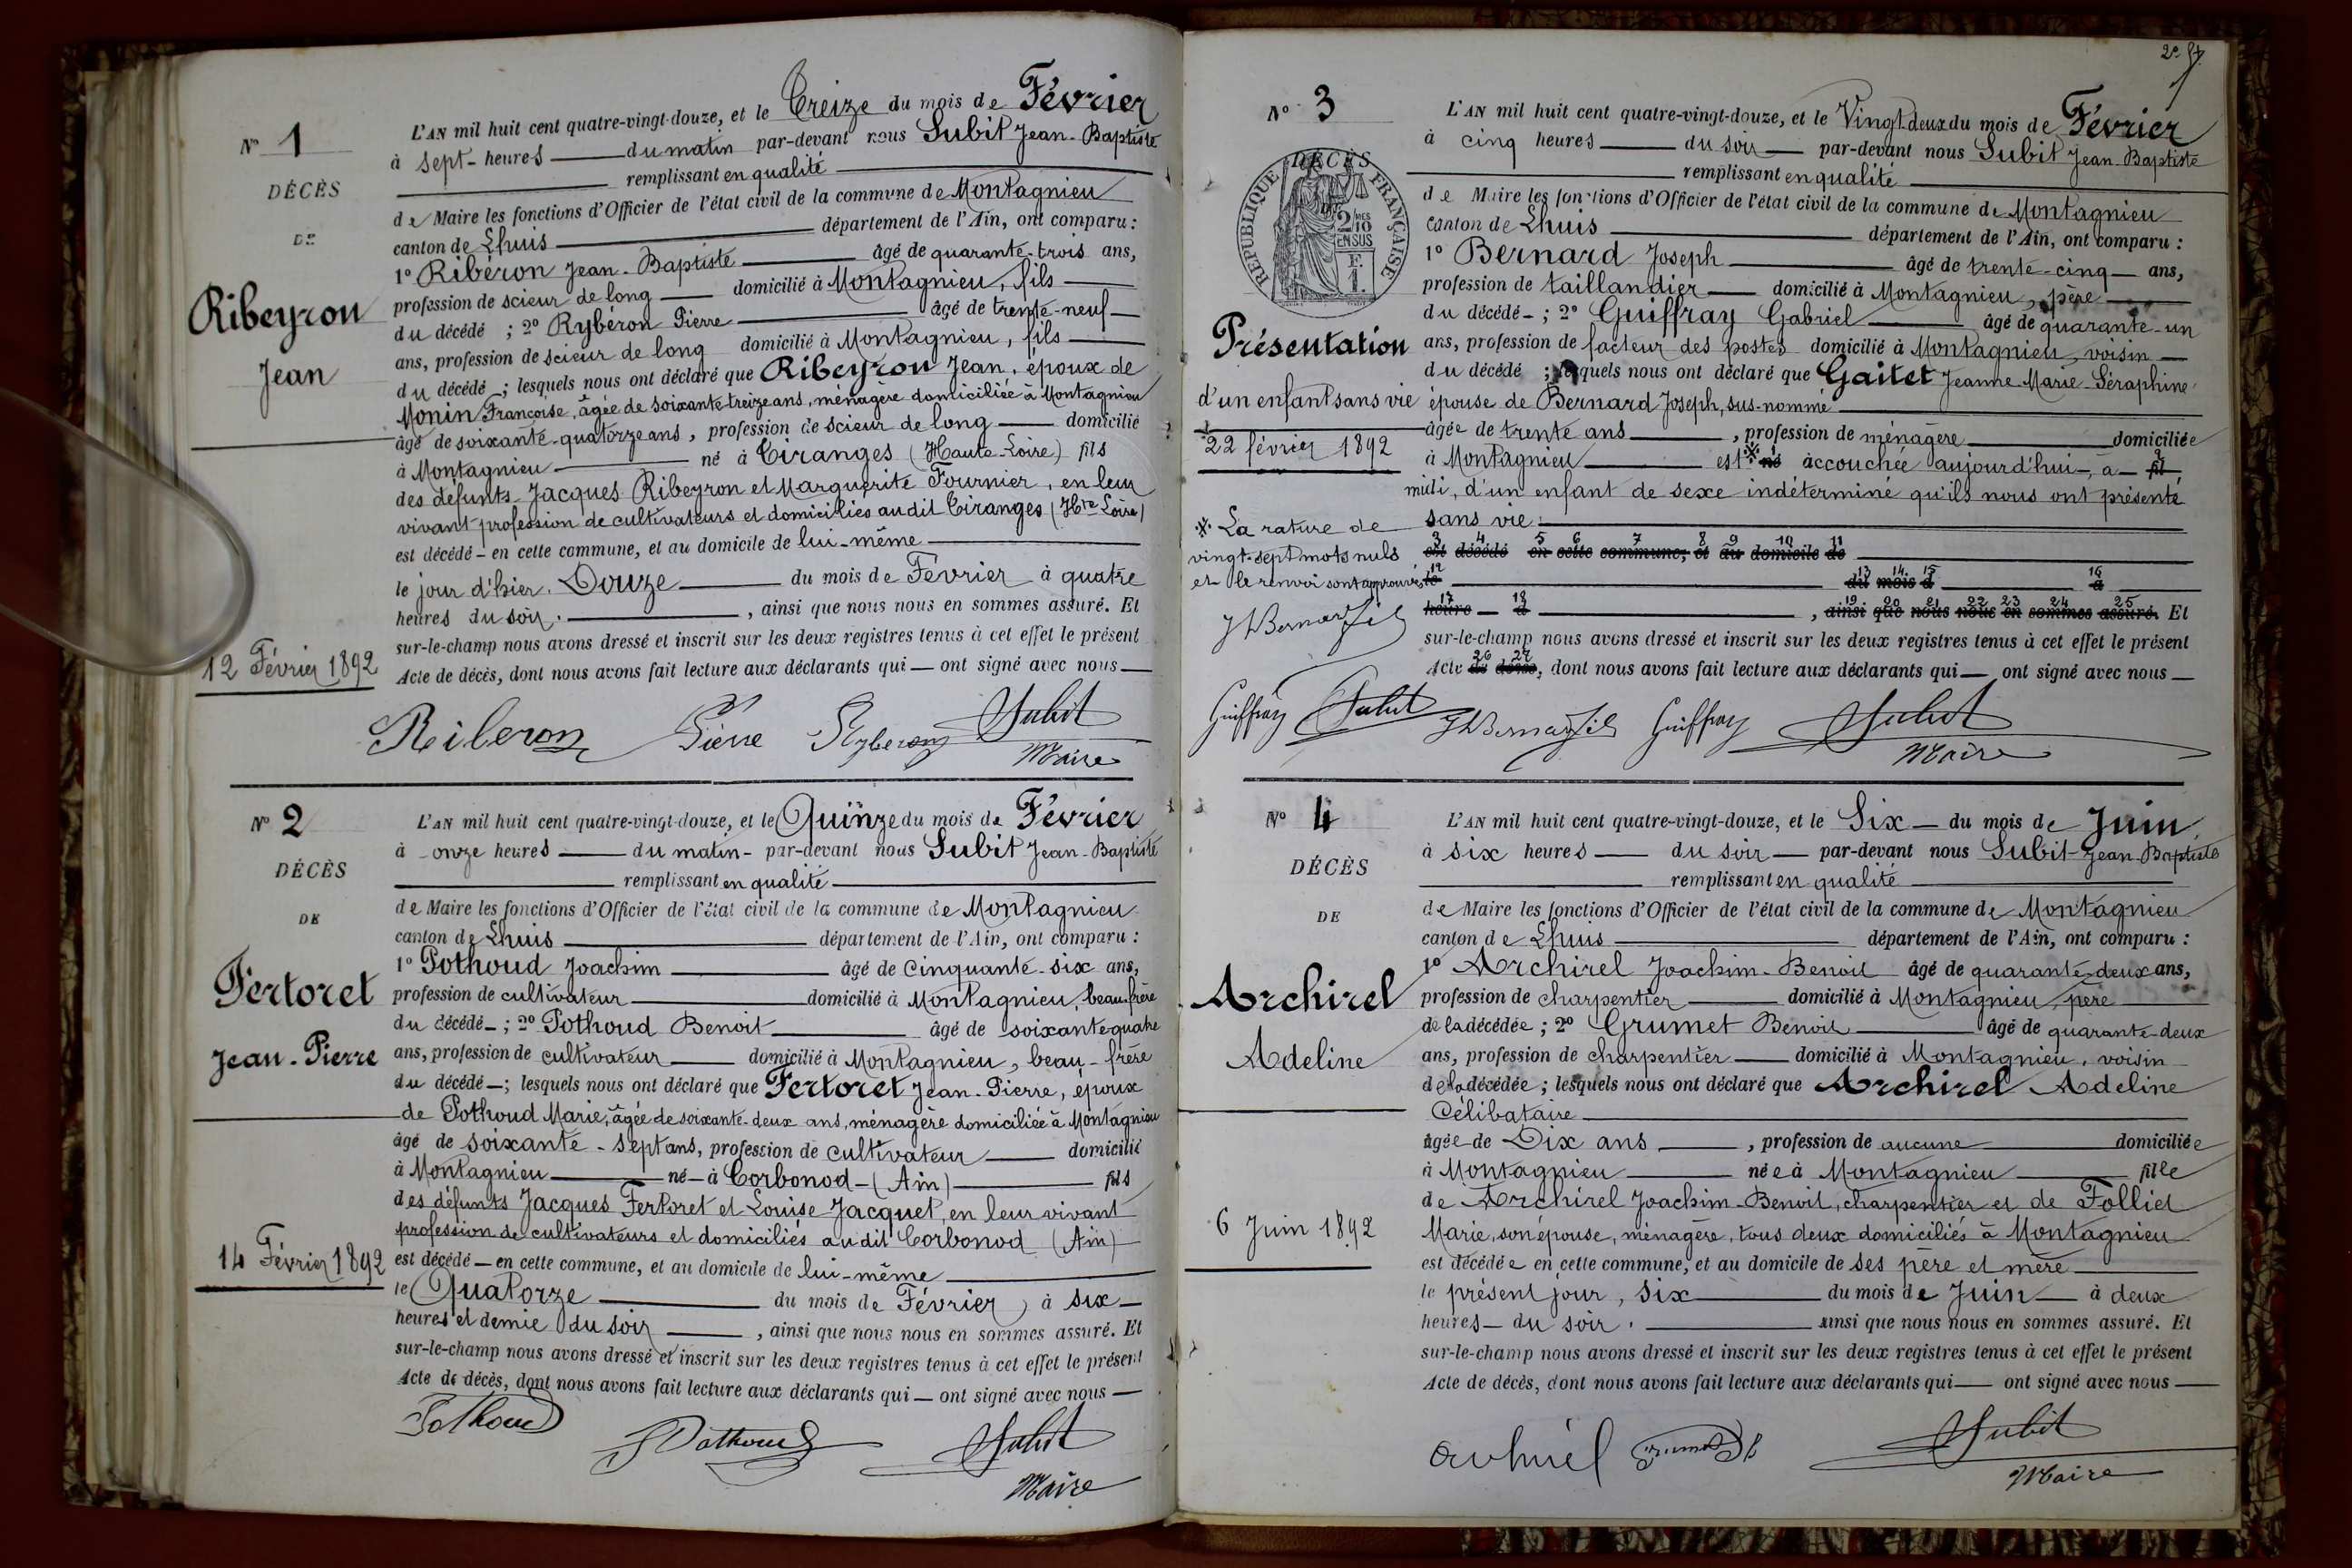 N° 1
DÉCÈS
DE
Ribeyron
Jean
12 Février 1892
L'AN mil huit cent quatre-vingt-douze, et le Treize du mois de Février
à sept heures du matin par-devant nous Subit Jean-Baptiste
remplissant en qualité
de Maire les fonctions d'Officier de l'état civil de la commune de Montagnieu
canton de Lhuis département de l'Ain, ont comparu :
1° Ribéron Jean-Baptiste âgé de quarante-trois ans,
profession de scieur de long domicilié à Montagnieu, fils
du décédé ; 2° Rybéron Pierre âgé de trente-neuf
ans, profession de scieur de long domicilié à Montagnieu, fils
du décédé ; lesquels nous ont déclaré que Ribeyron Jean, époux de
Monin Françoise, âgée de soixante treize ans, ménagère domiciliée à Montagnieu
âgé de soixante-quatorze ans, profession de scieur de long domicilié
à Montagnieu né à Tiranges (Haute-Loire) fils
des défunts Jacques Ribeyron et Marguerite Fournier, en leur
vivant profession de cultivateurs et domiciliés audit Tiranges (Hte Loire)
est décédé en cette commune, et au domicile de lui-même
le jour d'hier, Douze du mois de Février à quatre
heures du soir. , ainsi que nous nous en sommes assuré. Et
sur-le-champ nous avons dressé et inscrit sur les deux registres tenus à cet effet le présent
Acte de décès, dont nous avons fait lecture aux déclarants qui ont signé avec nous
Riberon Pierre Ryberon Subit
Maire
N° 2
DÉCÈS
DE
Fertoret
Jean-Pierre
14 Février 1892
L'AN mil huit cent quatre-vingt-douze, et le Quinze du mois de Février
à onze heures du matin par-devant nous Subit Jean-Baptiste
remplissant en qualité
de Maire les fonctions d'Officier de l'état civil de la commune de Montagnieu
canton de Lhuis département de l'Ain, ont comparu :
1° Pothoud Joachim âgé de Cinquante-six ans,
profession de cultivateur domicilié à Montagnieu, beau-frère
du décédé ; 2° Pothoud Benoit âgé de soixante-quatre
ans, profession de cultivateur domicilié à Montagnieu, beau-frère
du décédé ; lesquels nous ont déclaré que Fertoret Jean-Pierre, époux
de Pothoud Marie, âgée de soixante-deux ans, ménagère domiciliée à Montagnieu
âgé de soixante-sept ans, profession de cultivateur domicilié
à Montagnieu né à Corbonod (Ain) fils
des défunts Jacques Fertoret et Louise Jacquet, en leur vivant
profession de cultivateurs et domiciliés audit Corbonod (Ain)
est décédé en cette commune, et au domicile de lui-même
le Quatorze du mois de Février, à six
heures et demie du soir , ainsi que nous nous en sommes assuré. Et
sur-le-champ nous avons dressé et inscrit sur les deux registres tenus à cet effet le présent
Acte de décès, dont nous avons fait lecture aux déclarants qui ont signé avec nous
Pothoud Pothoud Subit
Maire
N° 3
DÉCÈS
RÉPUBLIQUE FRANÇAISE
2 MES
10
EN SUS
F.
1.
Présentation
d'un enfant sans vie
22 février 1892
L'AN mil huit cent quatre-vingt-douze, et le Vingt-deux du mois de Février
à cinq heures du soir par-devant nous Subit Jean-Baptiste
remplissant en qualité
de Maire les fonctions d'Officier de l'état civil de la commune de Montagnieu
canton de Lhuis département de l'Ain, ont comparu :
1° Bernard Joseph âgé de trente-cinq ans,
profession de taillandier domicilié à Montagnieu, père
du décédé ; 2° Guiffray Gabriel âgé de quarante-un
ans, profession de facteur des postes domicilié à Montagnieu, voisin
du décédé ; lesquels nous ont déclaré que Gaitet Jeanne-Marie-Séraphine
épouse de Bernard Joseph, sus-nommé
âgée de trente ans , profession de ménagère domiciliée
à Montagnieu est ※ né accouchée aujourd'hui, à fil
midi, d'un enfant de sexe indéterminé qu'ils nous ont présenté
sans vie.
3 4 5 6 7 8 9 10 11
est décédé en cette commune, et au domicile de
12 13 14 15 16
le du mois d à
17 18 19 20 21 22 23 24 25
heure d , ainsi que nous nous en sommes assuré. Et
sur-le-champ nous avons dressé et inscrit sur les deux registres tenus à cet effet le présent
26 27
Acte de décès, dont nous avons fait lecture aux déclarants qui ont signé avec nous
※ La rature de
vingt-sept mots nuls
et le renvoi sont approuvés
J Bernard fils
Guiffray Subit J Bernard fils Guiffray Subit
Maire
N° 4
DÉCÈS
DE
Archirel
Adeline
6 Juin 1892
L'AN mil huit cent quatre-vingt-douze, et le Six du mois de Juin
à six heures du soir par-devant nous Subit Jean-Baptiste
remplissant en qualité
de Maire les fonctions d'Officier de l'état civil de la commune de Montagnieu
canton de Lhuis département de l'Ain, ont comparu :
1° Archirel Joachim-Benoit âgé de quarante-deux ans,
profession de charpentier domicilié à Montagnieu, père
de la décédée ; 2° Grumet Benoit âgé de quarante-deux
ans, profession de charpentier domicilié à Montagnieu, voisin
de la décédée ; lesquels nous ont déclaré que Archirel Adeline
Célibataire
âgée de Dix ans , profession de aucune domiciliée
à Montagnieu née à Montagnieu fille
de Archirel Joachim-Benoit, charpentier et de Folliet
Marie, son épouse, ménagère, tous deux domiciliés à Montagnieu
est décédée en cette commune, et au domicile de ses père et mère
le présent jour, six du mois de Juin à deux
heures du soir. ainsi que nous nous en sommes assuré. Et
sur-le-champ nous avons dressé et inscrit sur les deux registres tenus à cet effet le présent
Acte de décès, dont nous avons fait lecture aux déclarants qui ont signé avec nous
Archirel Grumet Subit
Maire